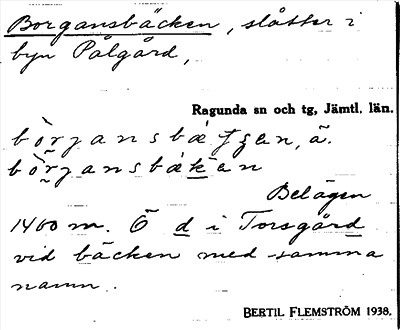 Borgansbäcken, slåtter i
byn Pålgård,
Ragunda sn och tg, Jämtl. län.
Belägen
1400 m. Ö d i Torsgård
vid bäcken med samma
namn.
BERTIL FLEMSTRÖM 1938.